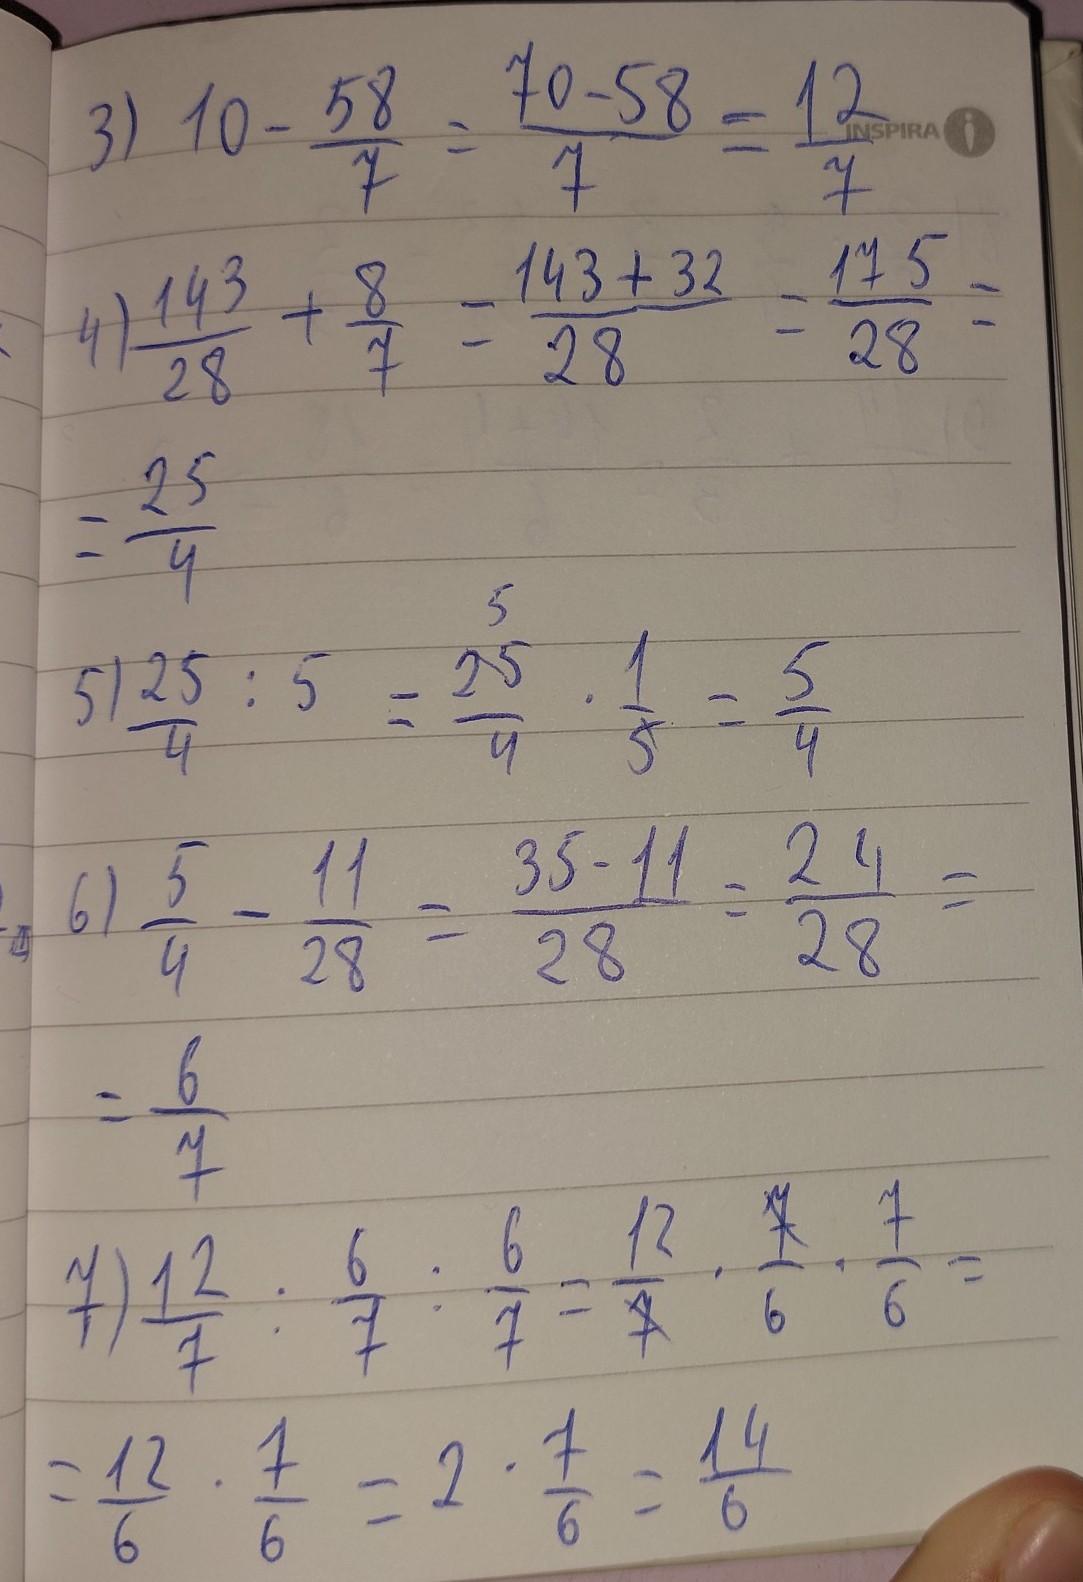 3) 10 - 58/7 = (70-58)/7 = 12/7
INSPIRA
4) 143/28 + 8/7 = (143+32)/28 = 175/28 =
= 25/4
5
5) 25/4 : 5 = 25/4 · 1/5 = 5/4
6) 5/4 - 11/28 = (35-11)/28 = 24/28 =
= 6/7
7) 12/7 : 6/7 : 6/7 = 12/7 · 7/6 · 7/6 =
= 12/6 · 7/6 = 2 · 7/6 = 14/6